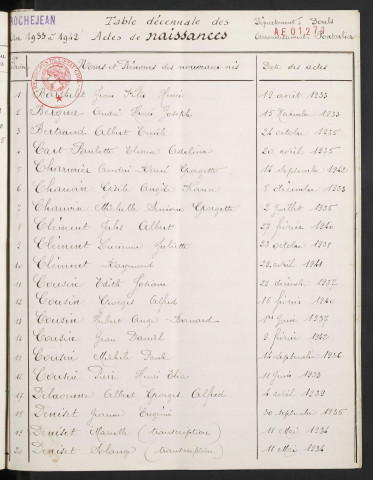 ROCHEJEAN
Table décennale des
Département: Doubs
De 1933 à 1942
Actes de naissances
Arrondissement: Pontarlier
AE 0127
Noms et Prénoms des nouveaux-nés
Date des actes
1 Henri 12 août 1933
2 André Henri Joseph 15 1933
3 Bertrand Albert Emile 24 octobre 1935
4 Cart Paulette Adeline 20 avril 1935
5 Georgette 14 septembre 1942
6 Chauvin Cécile Angèle 8 décembre 1933
7 Chauvin Michelle Simone Georgette 2 juillet 1935
8 Clément Jules Albert 27 février 1940
9 Clément Lucienne Juliette 23 octobre 1938
10 Clément Raymond 22 avril 1941
11 Cousin Edith 28 décembre 1937
12 Cousin Georges Alfred 18 février 1940
13 Cousin Hubert Ange Bernard 1er juin 1937
14 Cousin Jean Daniel 9 février 1942
15 Cousin Paule 14 septembre 1936
16 Cousin Henri 11 juin 1933
17 Delacroix Albert Georges Alfred 4 avril 1939
18 Deniset Jeanne Eugénie 30 septembre 1935
19 Deniset (transcription) 11 Mai 1934
20 Deniset Solange (transcription) 11 Mai 1934